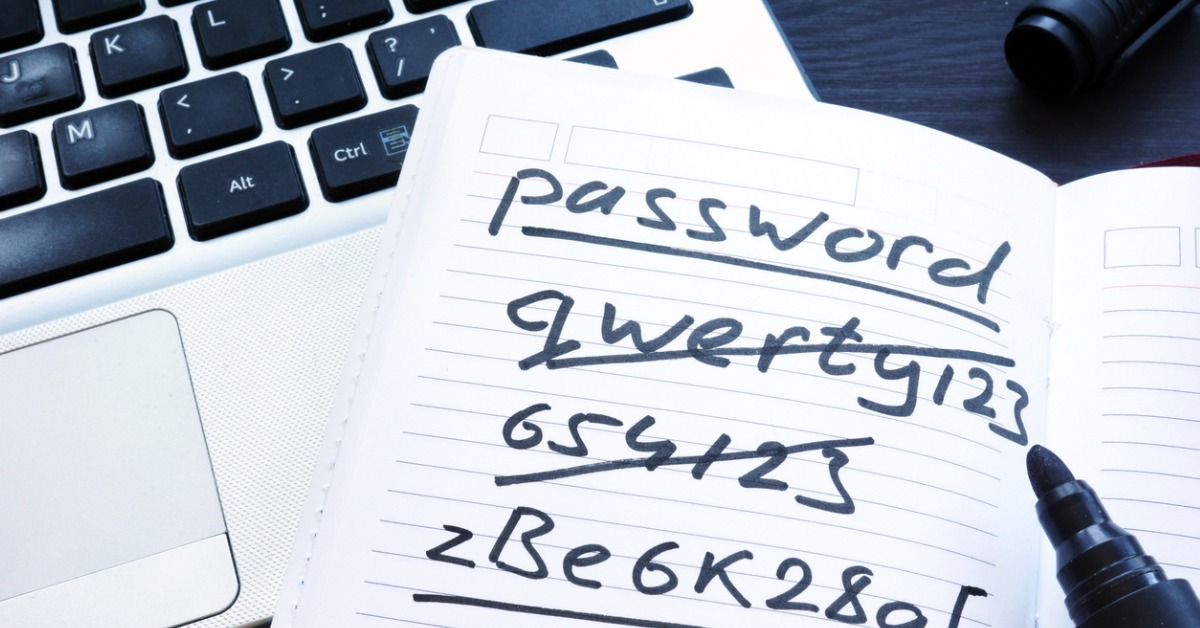 L
K
? /
J
> .
< ,
M
Ctrl
Alt
password
qwerty123
654123
zBe6K280